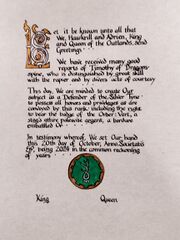 Let it be known unto all that
We, Hawkrill and Adrien, King
and Queen of the Outlands, send
Greetings.
We have received many good
reports of Timothy of Dragons-
spine, who is distinguished by great skill
with the rapier and by divers acts of courtesy
This day, We are minded to create Our
subject as a Defender of the Silver Tyne
to possess all honors and privileges as are
conveyed by this rank, including the right
to bear the badge of the Order: Vert, a
stag's attire palewise argent, a bordure
embattled Or.
In testimony whereof, We set Our hand
this 20th day of October, Anno Societatis
, being 2024 in the common reckoning
of years.
King Queen